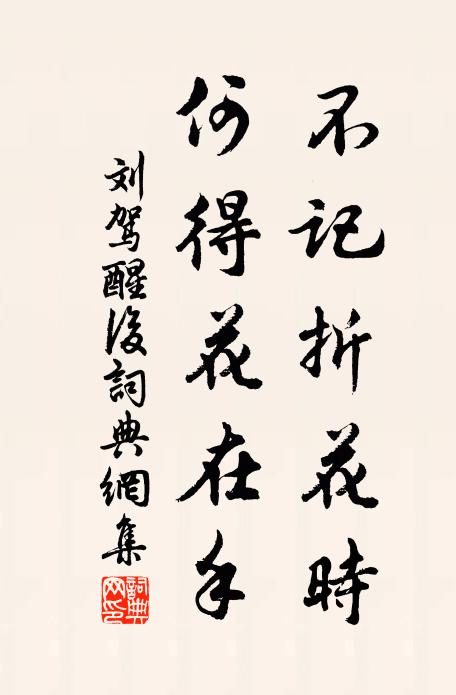 不記折花時
何得花在手
刘駕醒後詞典網集
詞典網印